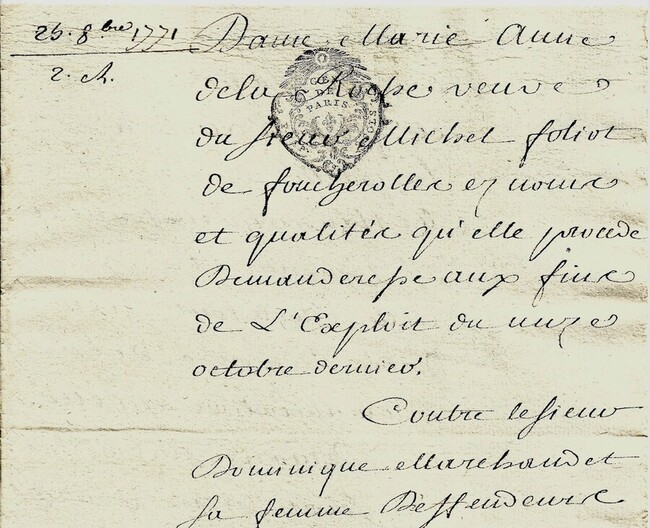 25. 8bre 1771
2. ch.
Dame Marie Anne
dela Roche veuve
du sieur Michel foliot
de foucherolles ez noms
et qualités qu'elle procede
Demanderesse aux fins
de L'Exploit du onze
octobre dernier.
Contre le sieur
Dominique Marchand et
sa femme Deffendeurs
GEN
DE
PARIS